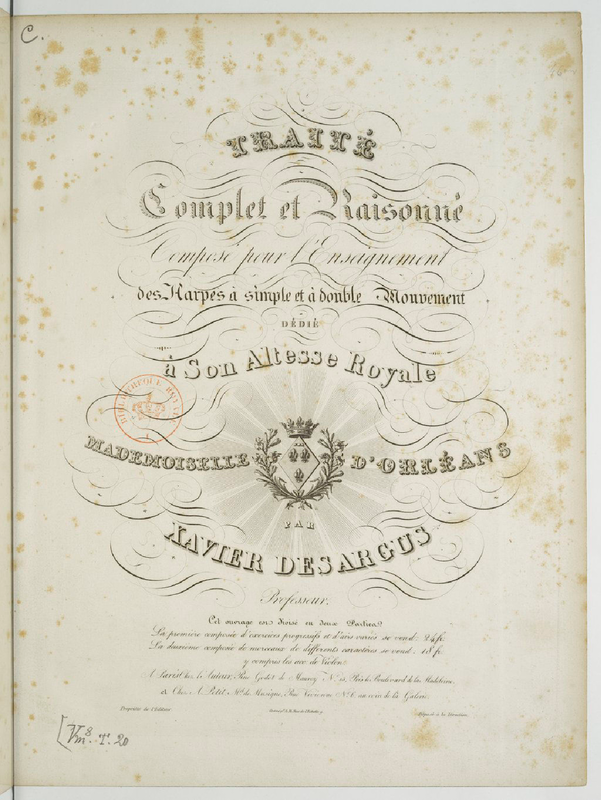 C.
TRAITÉ
Complet et Raisonné
Composé pour l'Enseignement
des Harpes à simple et à double Mouvement
DÉDIÉ
à Son Altesse Royale
BIBLIOTHEQUE ROYALE
MADEMOISELLE D'ORLÉANS
PAR
XAVIER DESARGUS
Professeur.
Cet ouvrage est divisé en deux Parties
La première composée d'exercices progressifs et d'airs variés se vend. 24 fr.
La deuxième composée de morceaux de différents caractères se vend. 18 fr.
y compris les acc. de Violon.
A Paris Chez l'Auteur, Rue Godot de Mauroy N° Près le Boulevard de la Madeleine.
a Chez A. Petit, Md. de Musique, Rue Vivienne N° 6 au coin de la Galerie.
Propriété de l'Editeur
Déposé à la Direction
Vm 8. T. 20